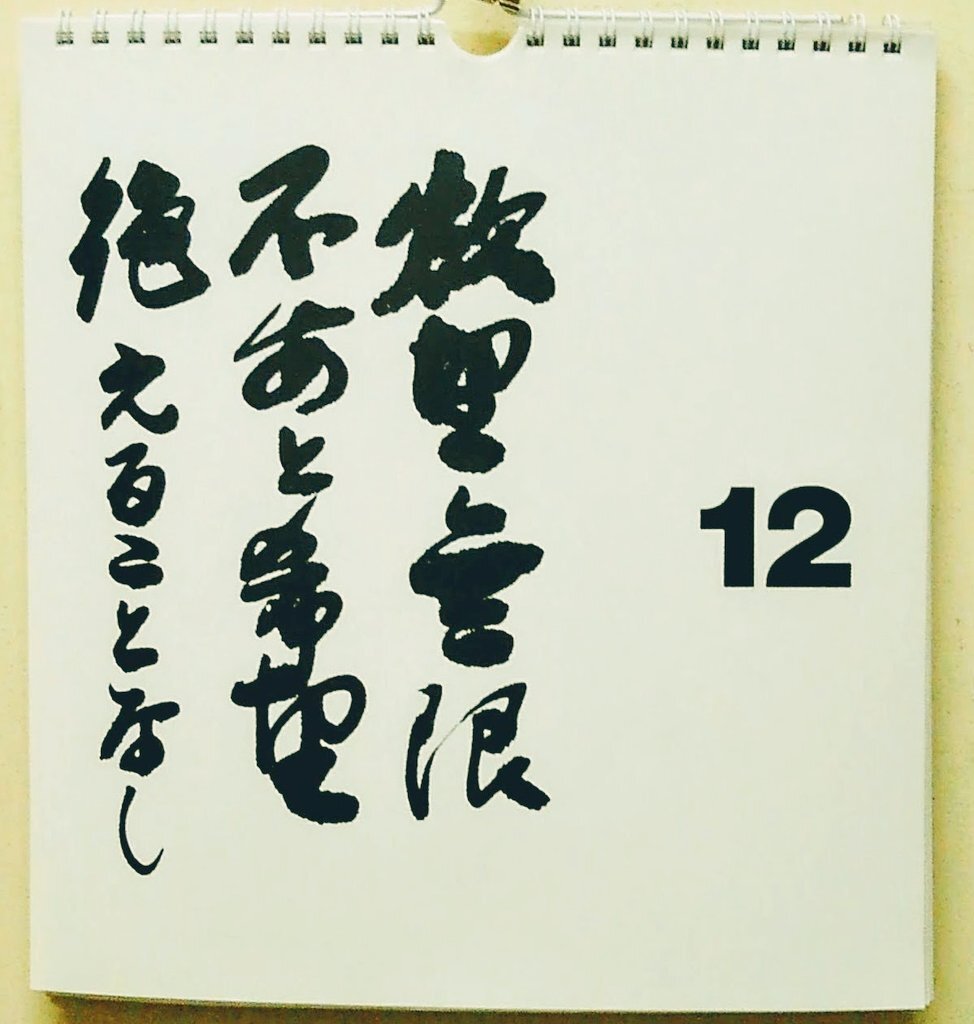 無限
不安と希望
絶えることなし
12